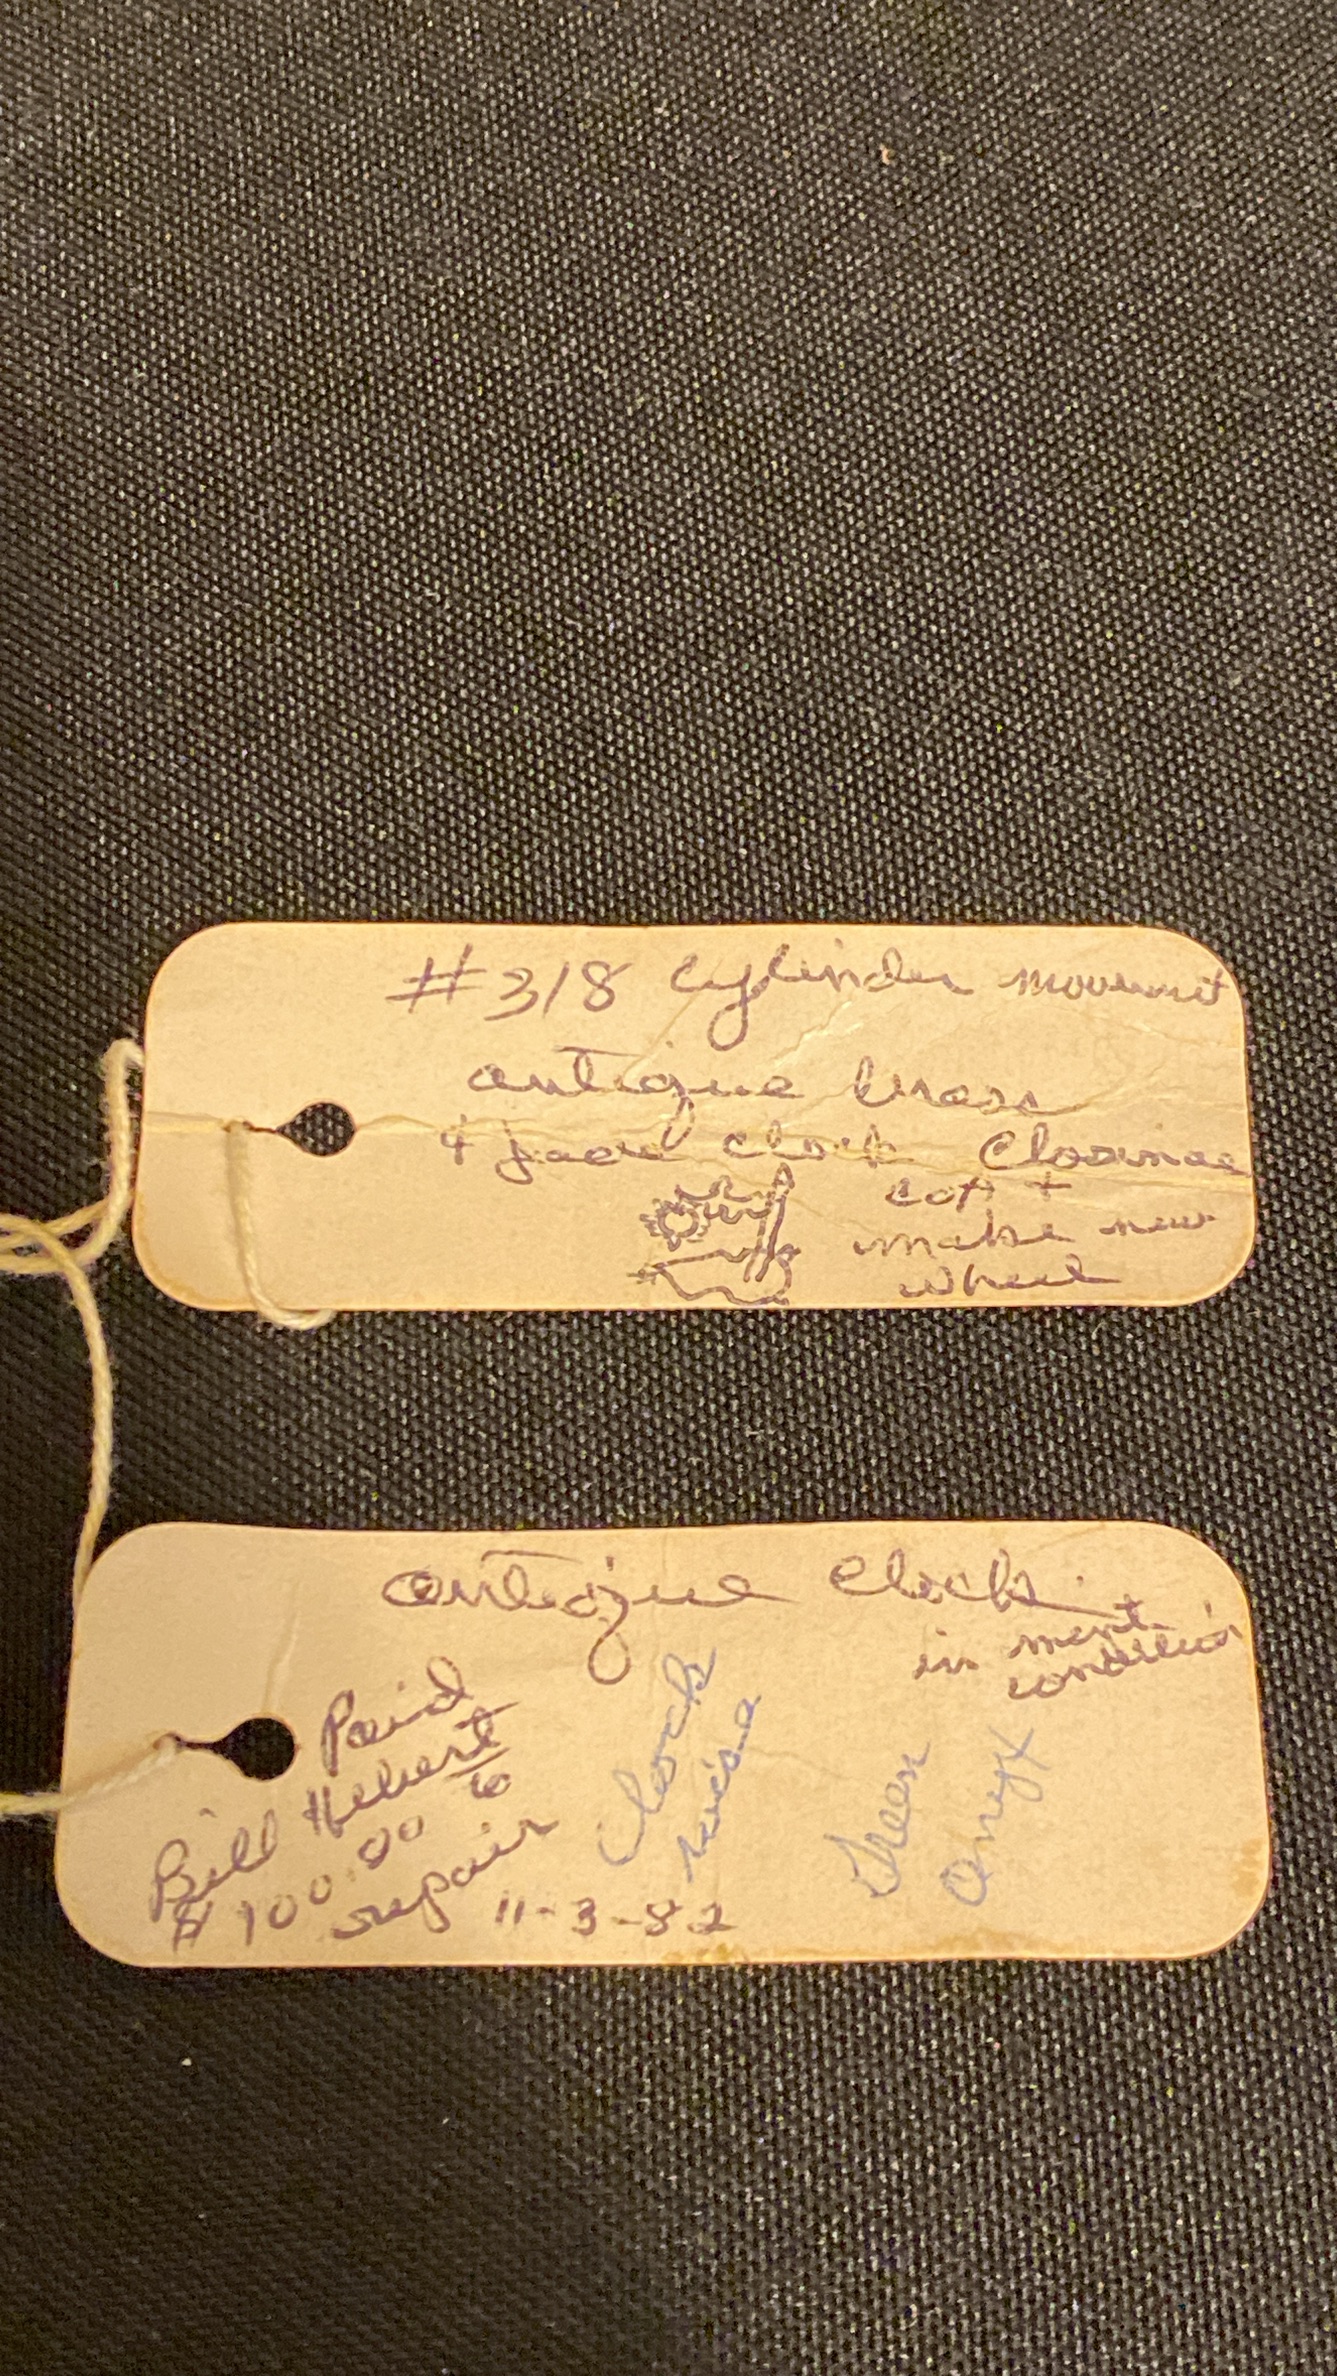 #318 cylinder movement
antique brass
& jewel clock Cloisonae
coA +
make new
wheel
antique clock
in mint
condition
Paid
Bill Hebert
$100.00 to
repair 11-3-82
Clock
Green
Onyx